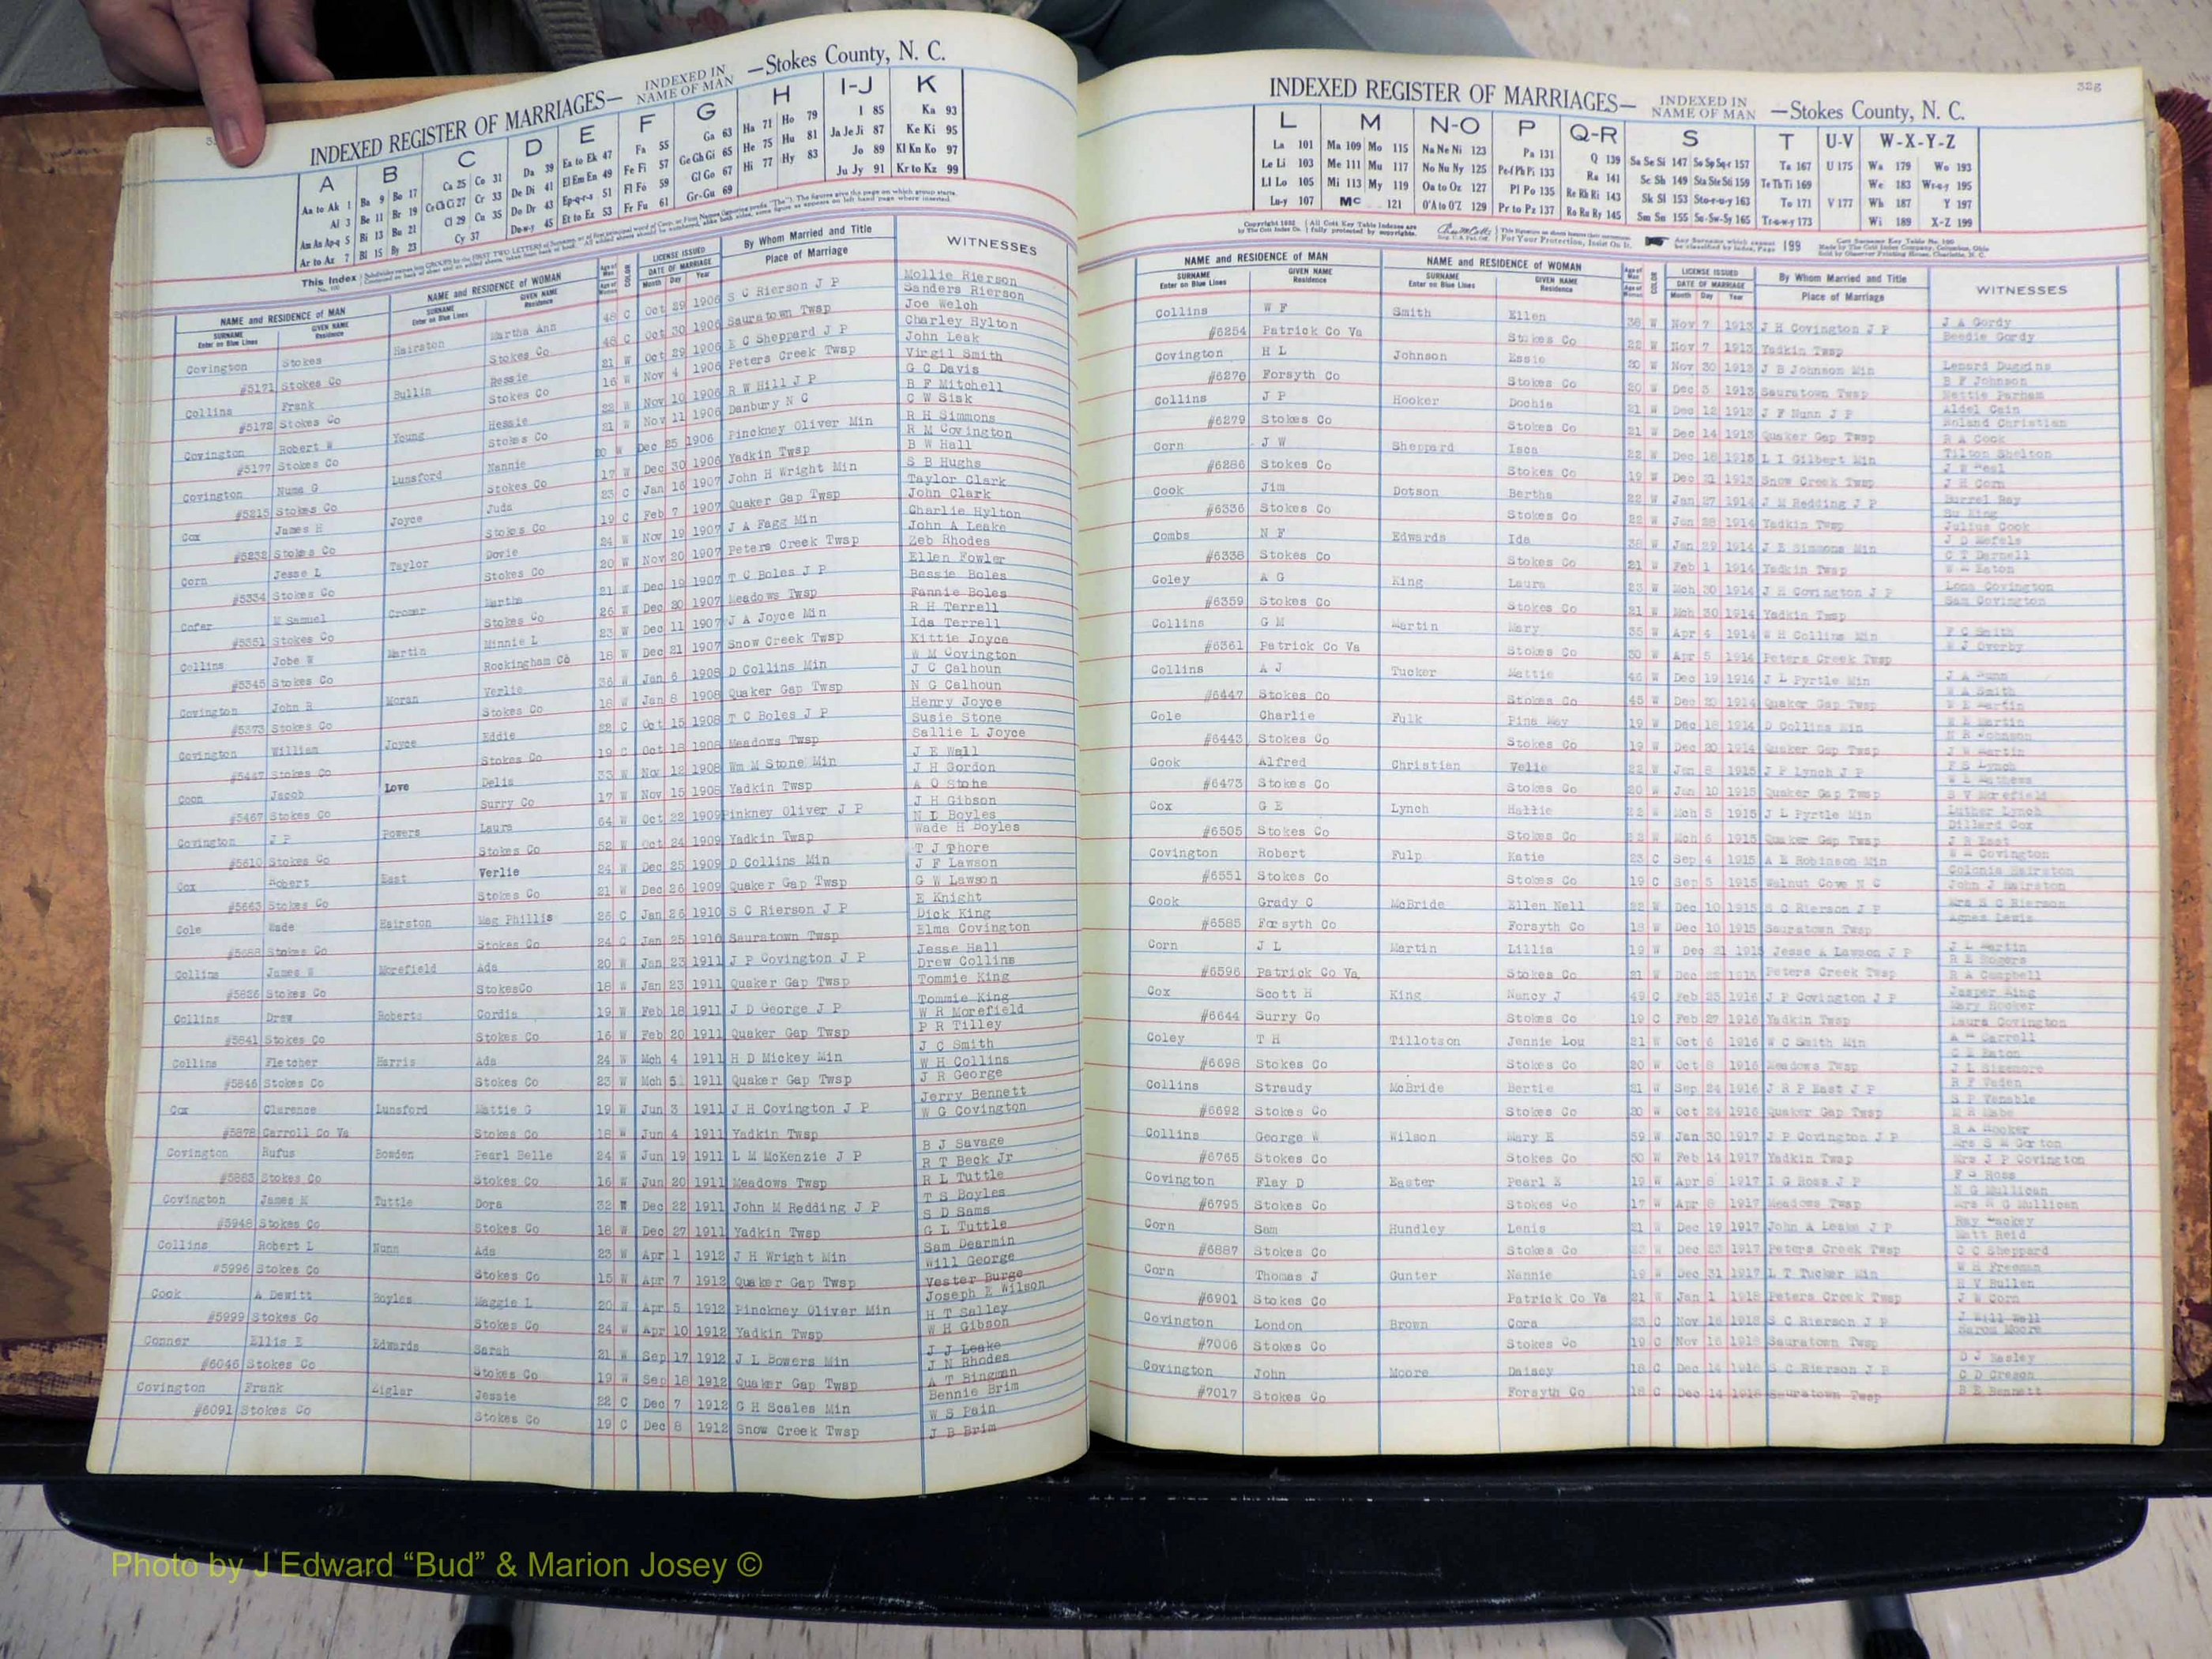 INDEXED REGISTER OF MARRIAGES— INDEXED IN NAME OF MAN —Stokes County, N. C.
A B C D E F G H I-J K
Aa to Ak 1 Ba 9 Bo 17 Ca 25 Co 31 Da 39 Ea to Ek 47 Fa 55 Ga 63 Ha 71 Ho 79 I 85 Ka 93
Al 3 Be 11 Br 19 Ce Ch Ci 27 Cr 33 De Di 41 El Em En 49 Fe Fi 57 Ge Gh Gi 65 He 75 Hu 81 Ja Je Ji 87 Ke Ki 95
Am An Ap-q 5 Bi 13 Bu 21 Cl 29 Cu 35 Do Dr 43 Ep-q-r-s 51 Fl Fo 59 Gl Go 67 Hi 77 Hy 83 Jo 89 Kl Kn Ko 97
Ar to Az 7 Bl 15 By 23 Cy 37 Du-w-y 45 Et to Ez 53 Fr Fu 61 Gr-Gu 69 Ju Jy 91 Kr to Kz 99
NAME and RESIDENCE of MAN NAME and RESIDENCE of WOMAN LICENSE ISSUED By Whom Married and Title WITNESSES
SURNAME GIVEN NAME SURNAME GIVEN NAME DATE OF MARRIAGE Place of Marriage
Enter on Blue Lines Residence Enter on Blue Lines Residence Month Day Year
Covington Stokes Hairston Martha Ann 48 C Oct 29 1906 S C Rierson J P Mollie Rierson
Sanders Rierson
#5171 Stokes Co Stokes Co 46 C Oct 30 1906 Sauratown Twsp Joe Welch
Collins Frank Bullin Bessie 21 W Oct 29 1906 E C Sheppard J P Charley Hylton
John Leak
#5172 Stokes Co Stokes Co 16 W Nov 4 1906 Peters Creek Twsp Virgil Smith
Covington Robert W Young Hessie 22 W Nov 10 1906 R W Hill J P G C Davis
B F Mitchell
#5177 Stokes Co Stokes Co 21 W Nov 11 1906 Danbury N C C W Sisk
Covington Numa G Lunsford Nannie 20 W Dec 25 1906 Pinckney Oliver Min R H Simmons
R M Covington
#5215 Stokes Co Stokes Co 17 W Dec 30 1906 Yadkin Twsp B W Hall
Cox James H Joyce Juda 23 C Jan 16 1907 John H Wright Min S B Hughs
Taylor Clark
#5232 Stokes Co Stokes Co 19 C Feb 7 1907 Quaker Gap Twsp John Clark
Corn Jesse L Taylor Dovie 24 W Nov 19 1907 J A Fagg Min Charlie Hylton
John A Leake
#5334 Stokes Co Stokes Co 20 W Nov 20 1907 Peters Creek Twsp Zeb Rhodes
Cofer M Samuel Cromer Martha 21 W Dec 19 1907 T C Boles J P Ellen Fowler
Bessie Boles
#5351 Stokes Co Stokes Co 26 W Dec 20 1907 Meadows Twsp Fannie Boles
Collins Jobe W Martin Minnie L 23 W Dec 11 1907 J A Joyce Min R H Terrell
Ida Terrell
#5345 Stokes Co Rockingham Co 18 W Dec 21 1907 Snow Creek Twsp Kittie Joyce
Covington John R Moran Verlie 36 W Jan 6 1908 D Collins Min W M Covington
J C Calhoun
#5373 Stokes Co Stokes Co 18 W Jan 8 1908 Quaker Gap Twsp N G Calhoun
Covington William Joyce Eddie 22 C Oct 15 1908 T C Boles J P Henry Joyce
Susie Stone
#5447 Stokes Co Stokes Co 19 C Oct 18 1908 Meadows Twsp Sallie L Joyce
Coon Jacob Love Delia 33 W Nov 12 1908 Wm M Stone Min J E Wall
J H Gordon
#5467 Stokes Co Surry Co 17 W Nov 15 1908 Yadkin Twsp A O Stone
Covington J P Powers Laura 64 W Oct 22 1909 Pinkney Oliver J P J H Gibson
N L Boyles
#5610 Stokes Co Stokes Co 52 W Oct 24 1909 Yadkin Twsp Wade H Boyles
Cox Robert East Verlie 24 W Dec 25 1909 D Collins Min T J Thore
J F Lawson
#5663 Stokes Co Stokes Co 21 W Dec 26 1909 Quaker Gap Twsp G W Lawson
Cole Wade Hairston Meg Phillis 26 C Jan 26 1910 S C Rierson J P E Knight
Dick King
#5688 Stokes Co Stokes Co 24 C Jan 25 1910 Sauratown Twsp Elma Covington
Collins James W Morefield Ada 20 W Jan 23 1911 J P Covington J P Jesse Hall
Drew Collins
#5826 Stokes Co StokesCo 18 W Jan 23 1911 Quaker Gap Twsp Tommie King
Collins Drew Roberts Cordia 19 W Feb 18 1911 J D George J P Tommie King
W R Morefield
#5841 Stokes Co Stokes Co 16 W Feb 20 1911 Quaker Gap Twsp P R Tilley
Collins Fletcher Harris Ada 24 W Mch 4 1911 H D Mickey Min J C Smith
W H Collins
#5846 Stokes Co Stokes Co 23 W Mch 5 1911 Quaker Gap Twsp J R George
Cox Clarence Lunsford Mattie G 19 W Jun 3 1911 J H Covington J P Jerry Bennett
W G Covington
#5878 Carroll Co Va Stokes Co 18 W Jun 4 1911 Yadkin Twsp
Covington Rufus Bowden Pearl Belle 24 W Jun 19 1911 L M McKenzie J P B J Savage
R T Beck Jr
#5883 Stokes Co Stokes Co 16 W Jun 20 1911 Meadows Twsp R L Tuttle
Covington James M Tuttle Dora 32 W Dec 22 1911 John M Redding J P T S Boyles
S D Sams
#5948 Stokes Co Stokes Co 18 W Dec 27 1911 Yadkin Twsp G L Tuttle
Collins Robert L Nunn Ada 23 W Apr 1 1912 J H Wright Min Sam Dearmin
Will George
#5996 Stokes Co Stokes Co 15 W Apr 7 1912 Quaker Gap Twsp Vester Burge
Cook A Dewitt Boyles Maggie L 20 W Apr 5 1912 Pinckney Oliver Min Joseph E Wilson
H T Salley
#5999 Stokes Co Stokes Co 24 W Apr 10 1912 Yadkin Twsp W H Gibson
Conner Ellis E Edwards Sarah 21 W Sep 17 1912 J L Bowers Min J J Leake
J N Rhodes
#6046 Stokes Co Stokes Co 19 W Sep 18 1912 Quaker Gap Twsp A T Bingman
Covington Frank Ziglar Jessie 22 C Dec 7 1912 G H Scales Min Bennie Brim
W S Pain
#6091 Stokes Co Stokes Co 19 C Dec 8 1912 Snow Creek Twsp J B Brim
INDEXED REGISTER OF MARRIAGES— INDEXED IN NAME OF MAN —Stokes County, N. C.
L M N-O P Q-R S T U-V W-X-Y-Z
La 101 Ma 109 Mo 115 Na Ne Ni 123 Pa 131 Q 139 Sa Se Si 147 So Sp Sq-r 157 Ta 167 U 175 Wa 179 Wo 193
Le Li 103 Me 111 Mu 117 No Nu Ny 125 Pe-f Ph Pi 133 Ra 141 Sc Sh 149 Sta Ste Sti 159 Te Th Ti 169 We 183 Wr-u-y 195
Ll Lo 105 Mi 113 My 119 Oa to Oz 127 Pl Po 135 Re Rh Ri 143 Sk Sl 153 Sto-r-u-y 163 To 171 V 177 Wh 187 Y 197
Lu-y 107 Mc 121 O'A to O'Z 129 Pr to Pz 137 Ro Ru Ry 145 Sm Sn 155 Su-Sw-Sy 165 Tr-u-w-y 173 Wi 189 X-Z 199
NAME and RESIDENCE OF MAN NAME and RESIDENCE OF WOMAN LICENSE ISSUED By Whom Married and Title WITNESSES
SURNAME GIVEN NAME SURNAME GIVEN NAME DATE OF MARRIAGE Place of Marriage
Enter on Blue Lines Residence Enter on Blue Lines Residence Month Day Year
Collins W F Smith Ellen 38 W Nov 7 1913 J H Covington J P J A Gordy
Beedie Gordy
#6254 Patrick Co Va Stokes Co 22 W Nov 7 1913 Yadkin Twsp
Covington H L Johnson Essie 20 W Nov 30 1913 J B Johnson Min Lenard Duggins
B F Johnson
#6276 Forsyth Co Stokes Co 20 W Dec 3 1913 Sauratown Twsp Nettie Parham
Collins J P Hooker Dochia 21 W Dec 12 1913 J F Nunn J P Aldel Cain
Roland Christian
#6279 Stokes Co Stokes Co 21 W Dec 14 1913 Quaker Gap Twsp R A Cook
Corn J W Sheppard Isca 22 W Dec 18 1913 L I Gilbert Min Tilton Shelton
#6286 Stokes Co Stokes Co 19 W Dec 21 1913 Snow Creek Twsp J H Corn
Cook Jim Dotson Bertha 22 W Jan 27 1914 J M Redding J P Burrel Ray
Bu King
#6336 Stokes Co Stokes Co 22 W Jan 28 1914 Yadkin Twsp Julius Cook
Combs N F Edwards Ida 38 W Jan 29 1914 J E Simmons Min
C T Darnell
#6338 Stokes Co Stokes Co 21 W Feb 1 1914 Yadkin Twsp
Coley A G King Laura 23 W Mch 30 1914 J H Covington J P Lona Covington
Sam Covington
#6359 Stokes Co Stokes Co 21 W Mch 30 1914 Yadkin Twsp
Collins G M Martin Mary 35 W Apr 4 1914 W H Collins Min F C Smith
W J Overby
#6361 Patrick Co Va Stokes Co 30 W Apr 5 1914 Peters Creek Twsp
Collins A J Tucker Mattie 46 W Dec 19 1914 J L Pyrtle Min
W A Smith
#6447 Stokes Co Stokes Co 45 W Dec 20 1914 Quaker Gap Twsp W E Martin
Cole Charlie Fulk Pina May 19 W Dec 18 1914 D Collins Min W E Martin
N R Johnson
#6443 Stokes Co Stokes Co 19 W Dec 20 1914 Quaker Gap Twsp J W Martin
Cook Alfred Christian Velie 22 W Jan 8 1915 J P Lynch J P F S Lynch
W E Mathews
#6473 Stokes Co Stokes Co 20 W Jan 10 1915 Quaker Gap Twsp S V Morefield
Cox G E Lynch Hallie 22 W Mch 5 1915 J L Pyrtle Min Luther Lynch
Dillard Cox
#6505 Stokes Co Stokes Co 22 W Mch 6 1915 Quaker Gap Twsp J R East
Covington Robert Fulp Katie 23 C Sep 4 1915 A E Robinson Min Covington
Colonia Hairston
#6551 Stokes Co Stokes Co 19 C Sep 5 1915 Walnut Cove N C John J Hairston
Cook Grady C McBride Ellen Nell 22 W Dec 10 1915 S C Rierson J P Mrs S C Rierson
Agnes Lewis
#6585 Forsyth Co Forsyth Co 18 W Dec 10 1915 Sauratown Twsp
Corn J L Martin Lillia 19 W Dec 21 1915 Jesse A Lawson J P J L Martin
R E Rogers
#6596 Patrick Co Va Stokes Co 21 W Dec 22 1915 Peters Creek Twsp R A Campbell
Cox Scott H King Nancy J 49 C Feb 25 1916 J P Covington J P Jasper King
Mary Hooker
#6644 Surry Co Stokes Co 19 C Feb 27 1916 Yadkin Twsp Laura Covington
Coley T H Tillotson Jennie Lou 21 W Oct 6 1916 W C Smith Min Carroll
C E Eaton
#6698 Stokes Co Stokes Co 20 W Oct 8 1916 Meadows Twsp J L Sizemore
Collins Straudy McBride Bertie 21 W Sep 24 1916 J R P East J P R F Vaden
S P Venable
#6692 Stokes Co Stokes Co 20 W Oct 24 1916 Quaker Gap Twsp M R Mabe
Collins George W Wilson Mary E 59 W Jan 30 1917 J P Covington J P R A Hooker
Mrs S M Gorton
#6765 Stokes Co Stokes Co 50 W Feb 14 1917 Yadkin Twsp Mrs J P Covington
Covington Flay D Easter Pearl E 19 W Apr 8 1917 I G Ross J P F S Ross
N G Mullican
#6795 Stokes Co Stokes Co 17 W Apr 8 1917 Meadows Twsp Mrs N G Mullican
Corn Sam Hundley Lenis 21 W Dec 19 1917 John A Leake J P Ray Mackey
Matt Reid
#6887 Stokes Co Stokes Co W Dec 23 1917 Peters Creek Twsp C C Sheppard
Corn Thomas J Gunter Nannie 19 W Dec 31 1917 L T Tucker Min W H Freeman
R V Bullen
#6901 Stokes Co Patrick Co Va 21 W Jan 1 1918 Peters Creek Twsp J W Corn
Covington London Brown Cora 23 C Nov 16 1918 S C Rierson J P J Will Wall
Moore
#7006 Stokes Co Stokes Co 19 C Nov 16 1918 Sauratown Twsp
Covington John Moore Daisey 18 C Dec 14 1918 S C Rierson J P D J Easley
C D Creson
#7017 Stokes Co Forsyth Co 18 C Dec 14 1918 Sauratown Twsp B E Bennett
Photo by J Edward “Bud” & Marion Josey ©